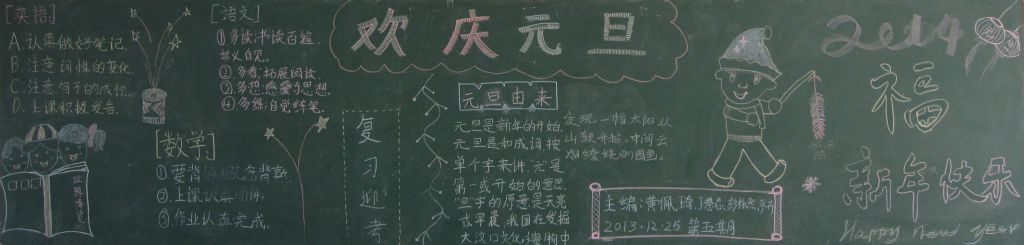 [英语]
A.认真做好笔记.
B.注意词性的变化.
C.注意句子的成份.
D.上课积极发言.
[语文]
①多读:书读百遍,
其义自见.
②多看:拓展阅读.
③多想:感受与思想.
④多练:自觉练笔.
[数学]
①要背的概念背熟.
②上课认真听讲.
③作业认真完成.
欢庆元旦
复习迎考
元旦由来
元旦是新年的开始,
元旦是和成词,按
单个字来讲,"元"是
第一或开始的意思,
"旦"字的原意是天亮
或早晨.我国在发掘
大汶口文化遗物中
发现一幅太阳从
山顶升起,中间云
烟缭绕的图画.
主编:黄佩
2013.12.25 第五期
2014
福
新年快乐
Happy new year